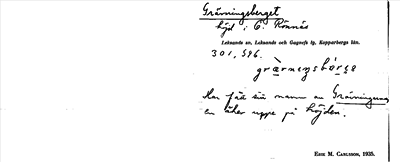 Gräiningsberget
höjd i C. Rönnäs
Leksands sn, Leksands och Gagnefs tg, Kopparbergs län.
301, 596.
Har fått sitt namn av Gräiningarna
en åker uppe på höjden.
ERIK M. CARLSSON, 1935.